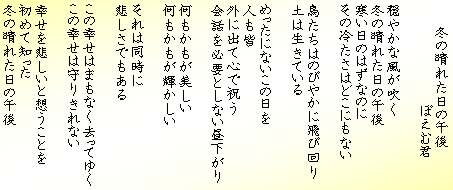 冬の晴れた日の午後
ぽえむ君
穏やかな風が吹く
冬の晴れた日の午後
寒い日のはずなのに
その冷たさはどこにもない
鳥たちはのびやかに飛び回り
土は生きている
めったにないこの日を
人も皆
外に出て心で祝う
会話を必要としない昼下がり
何もかもが美しい
何もかもが輝かしい
それは同時に
悲しさでもある
この幸せはまもなく去ってゆく
この幸せは守りきれない
幸せを悲しいと想うことを
初めて知った
冬の晴れた日の午後